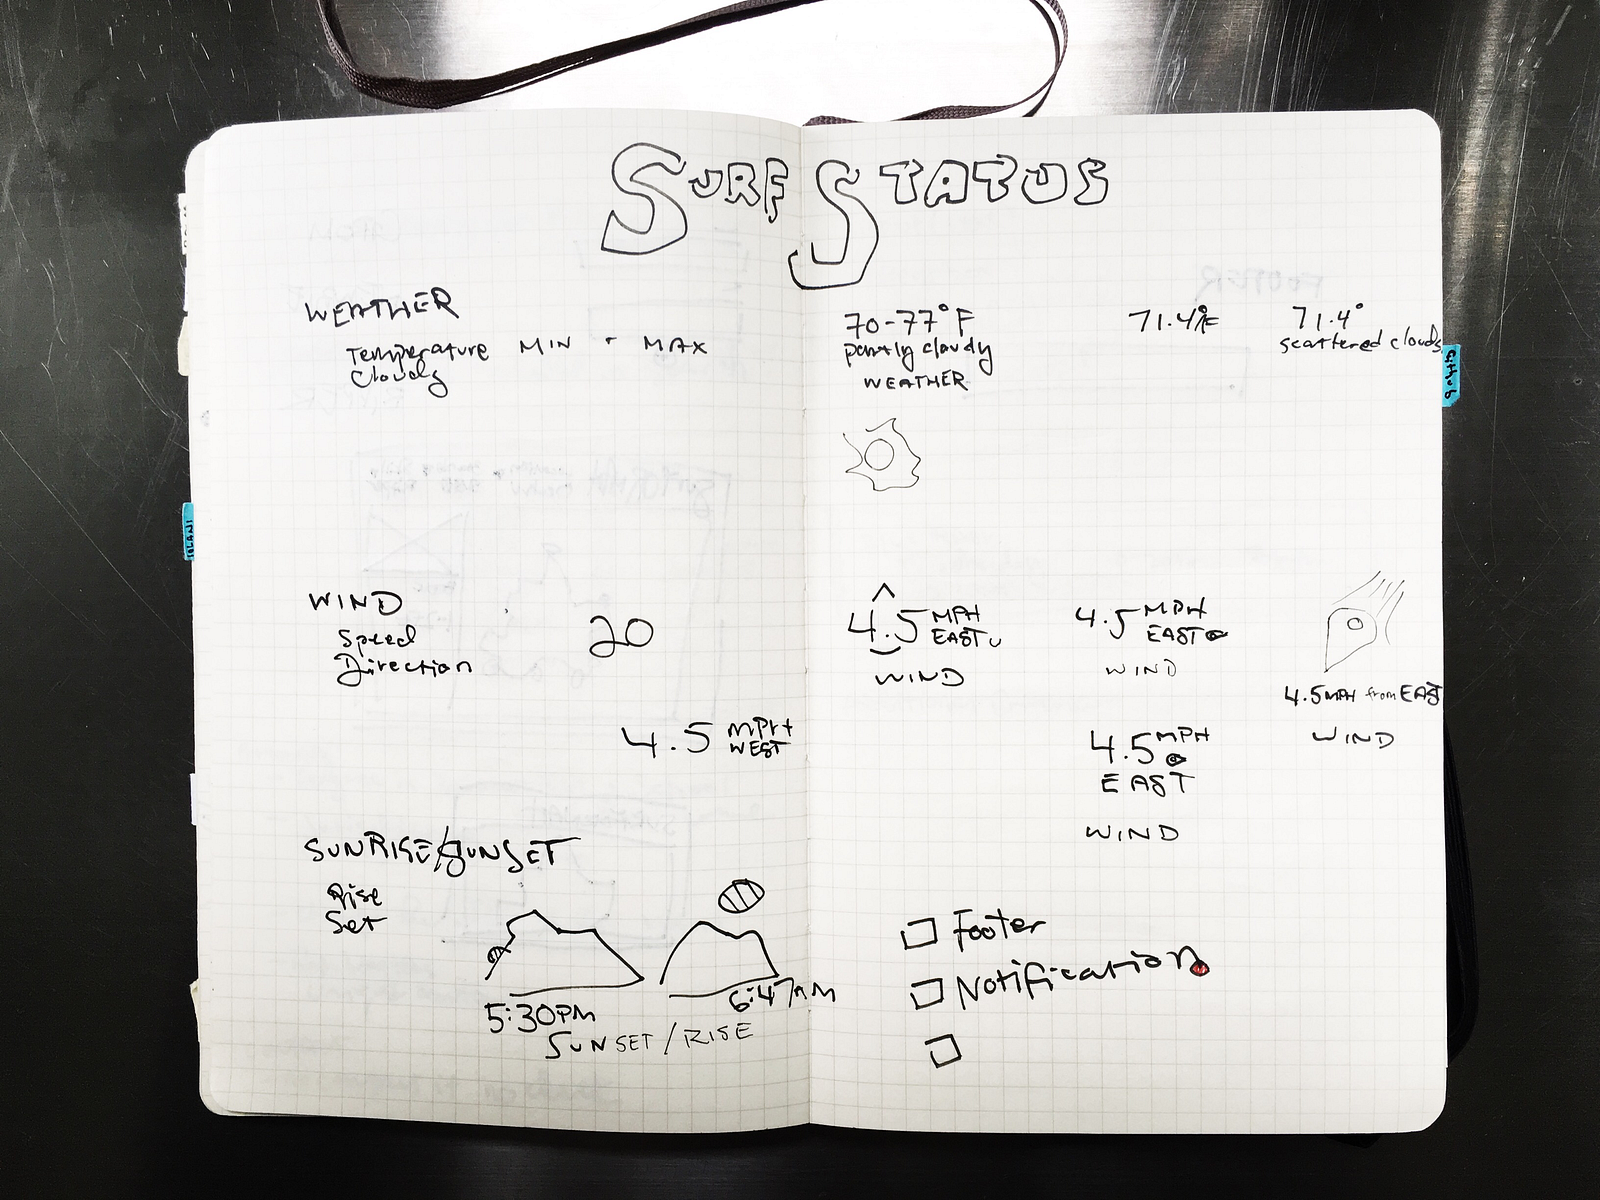 SURF STATUS
WEATHER
Temperature MIN + MAX
Clouds
70-77°F
partly cloudy
WEATHER
71.4°F
71.4°
scattered clouds
WIND
Speed
Direction
20
4.5 MPH
WEST
4.5 MPH
EAST
WIND
4.5 MPH
EAST
WIND
4.5 MPH
EAST
WIND
4.5 MPH from EAST
WIND
SUNRISE/SUNSET
Rise
Set
5:30PM
6:47AM
SUNSET/RISE
Footer
Notification